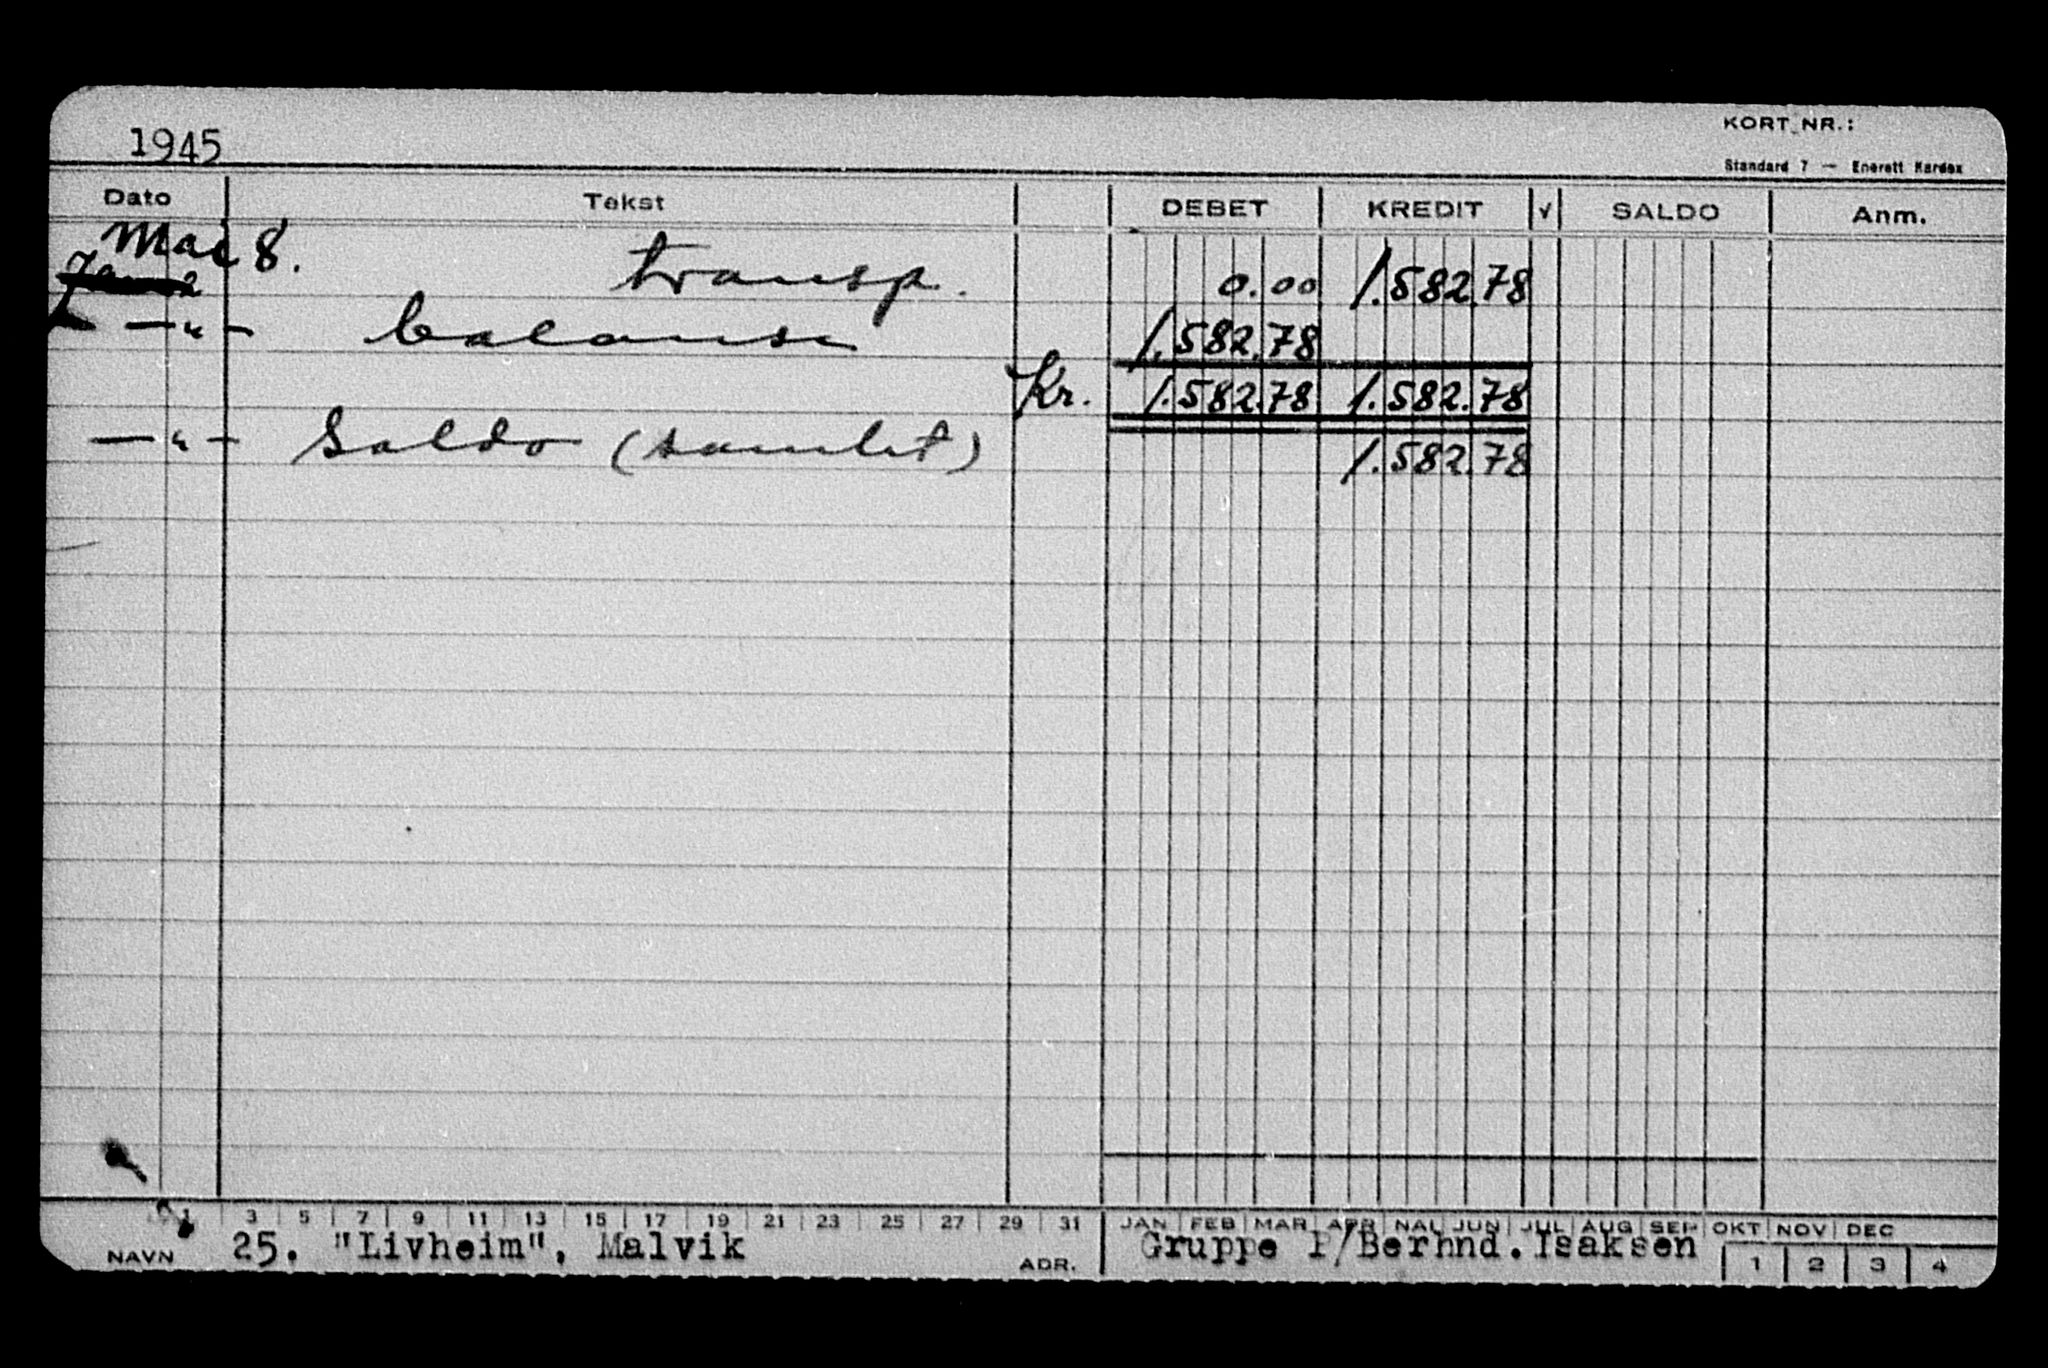 1945
KORT NR.:
Standard 7 — Enerett Kardex
Dato Tekst DEBET KREDIT √ SALDO Anm.
Mai 8. transp. 0.00 1.582.78
— " — balanse 1.582.78
Kr. 1.582.78 1.582.78
— " — Saldo (samlet) 1.582.78
1 3 5 7 9 11 13 15 17 19 21 23 25 27 29 31 JAN FEB MAR APR MAI JUN JUL AUG SEP OKT NOV DEC
NAVN 25. "Livheim", Malvik ADR. Gruppe P/Bernhd. Isaksen 1 2 3 4